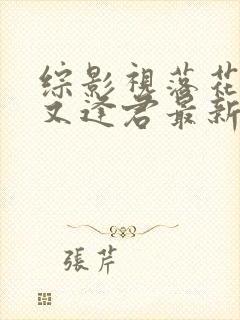 综影视落花
又逢君最新
張芹